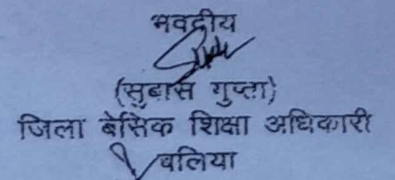 भवदीय
(सुबास गुप्ता)
जिला बेसिक शिक्षा अधिकारी
बलिया